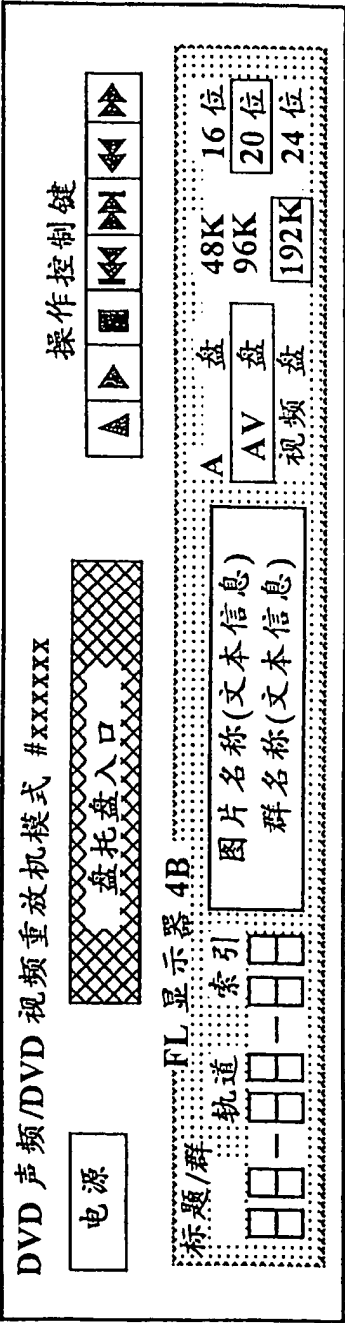 DVD 声频/DVD 视频重放机模式 #xxxxxx
电源
盘托盘入口
操作控制键
FL 显示器 4B
标题/群 轨道 索引
图片名称(文本信息)
群名称(文本信息)
A 盘
AV 盘
视频 盘
48K
96K
192K
16 位
20 位
24 位